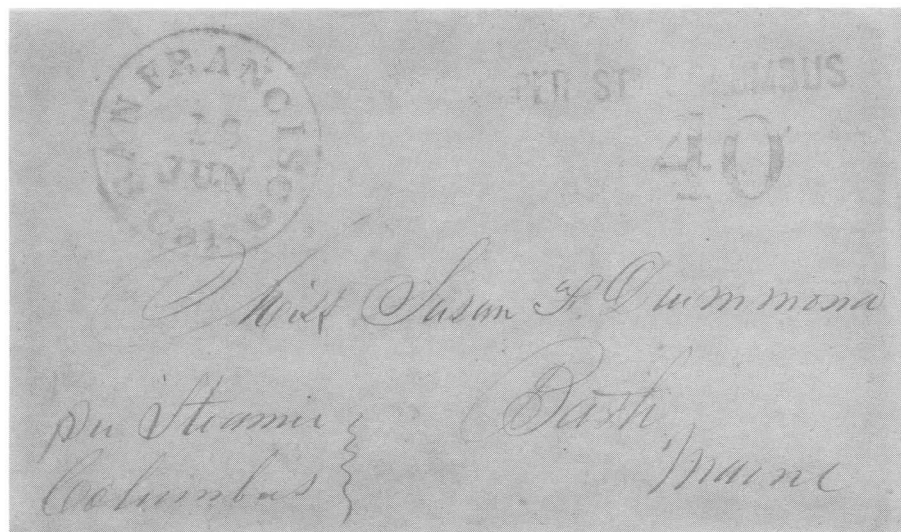 SAN FRANCISCO CAL.
18
JUN
40
Miss Susan F. Drummond
Bath
Maine
per Steamer
Columbus